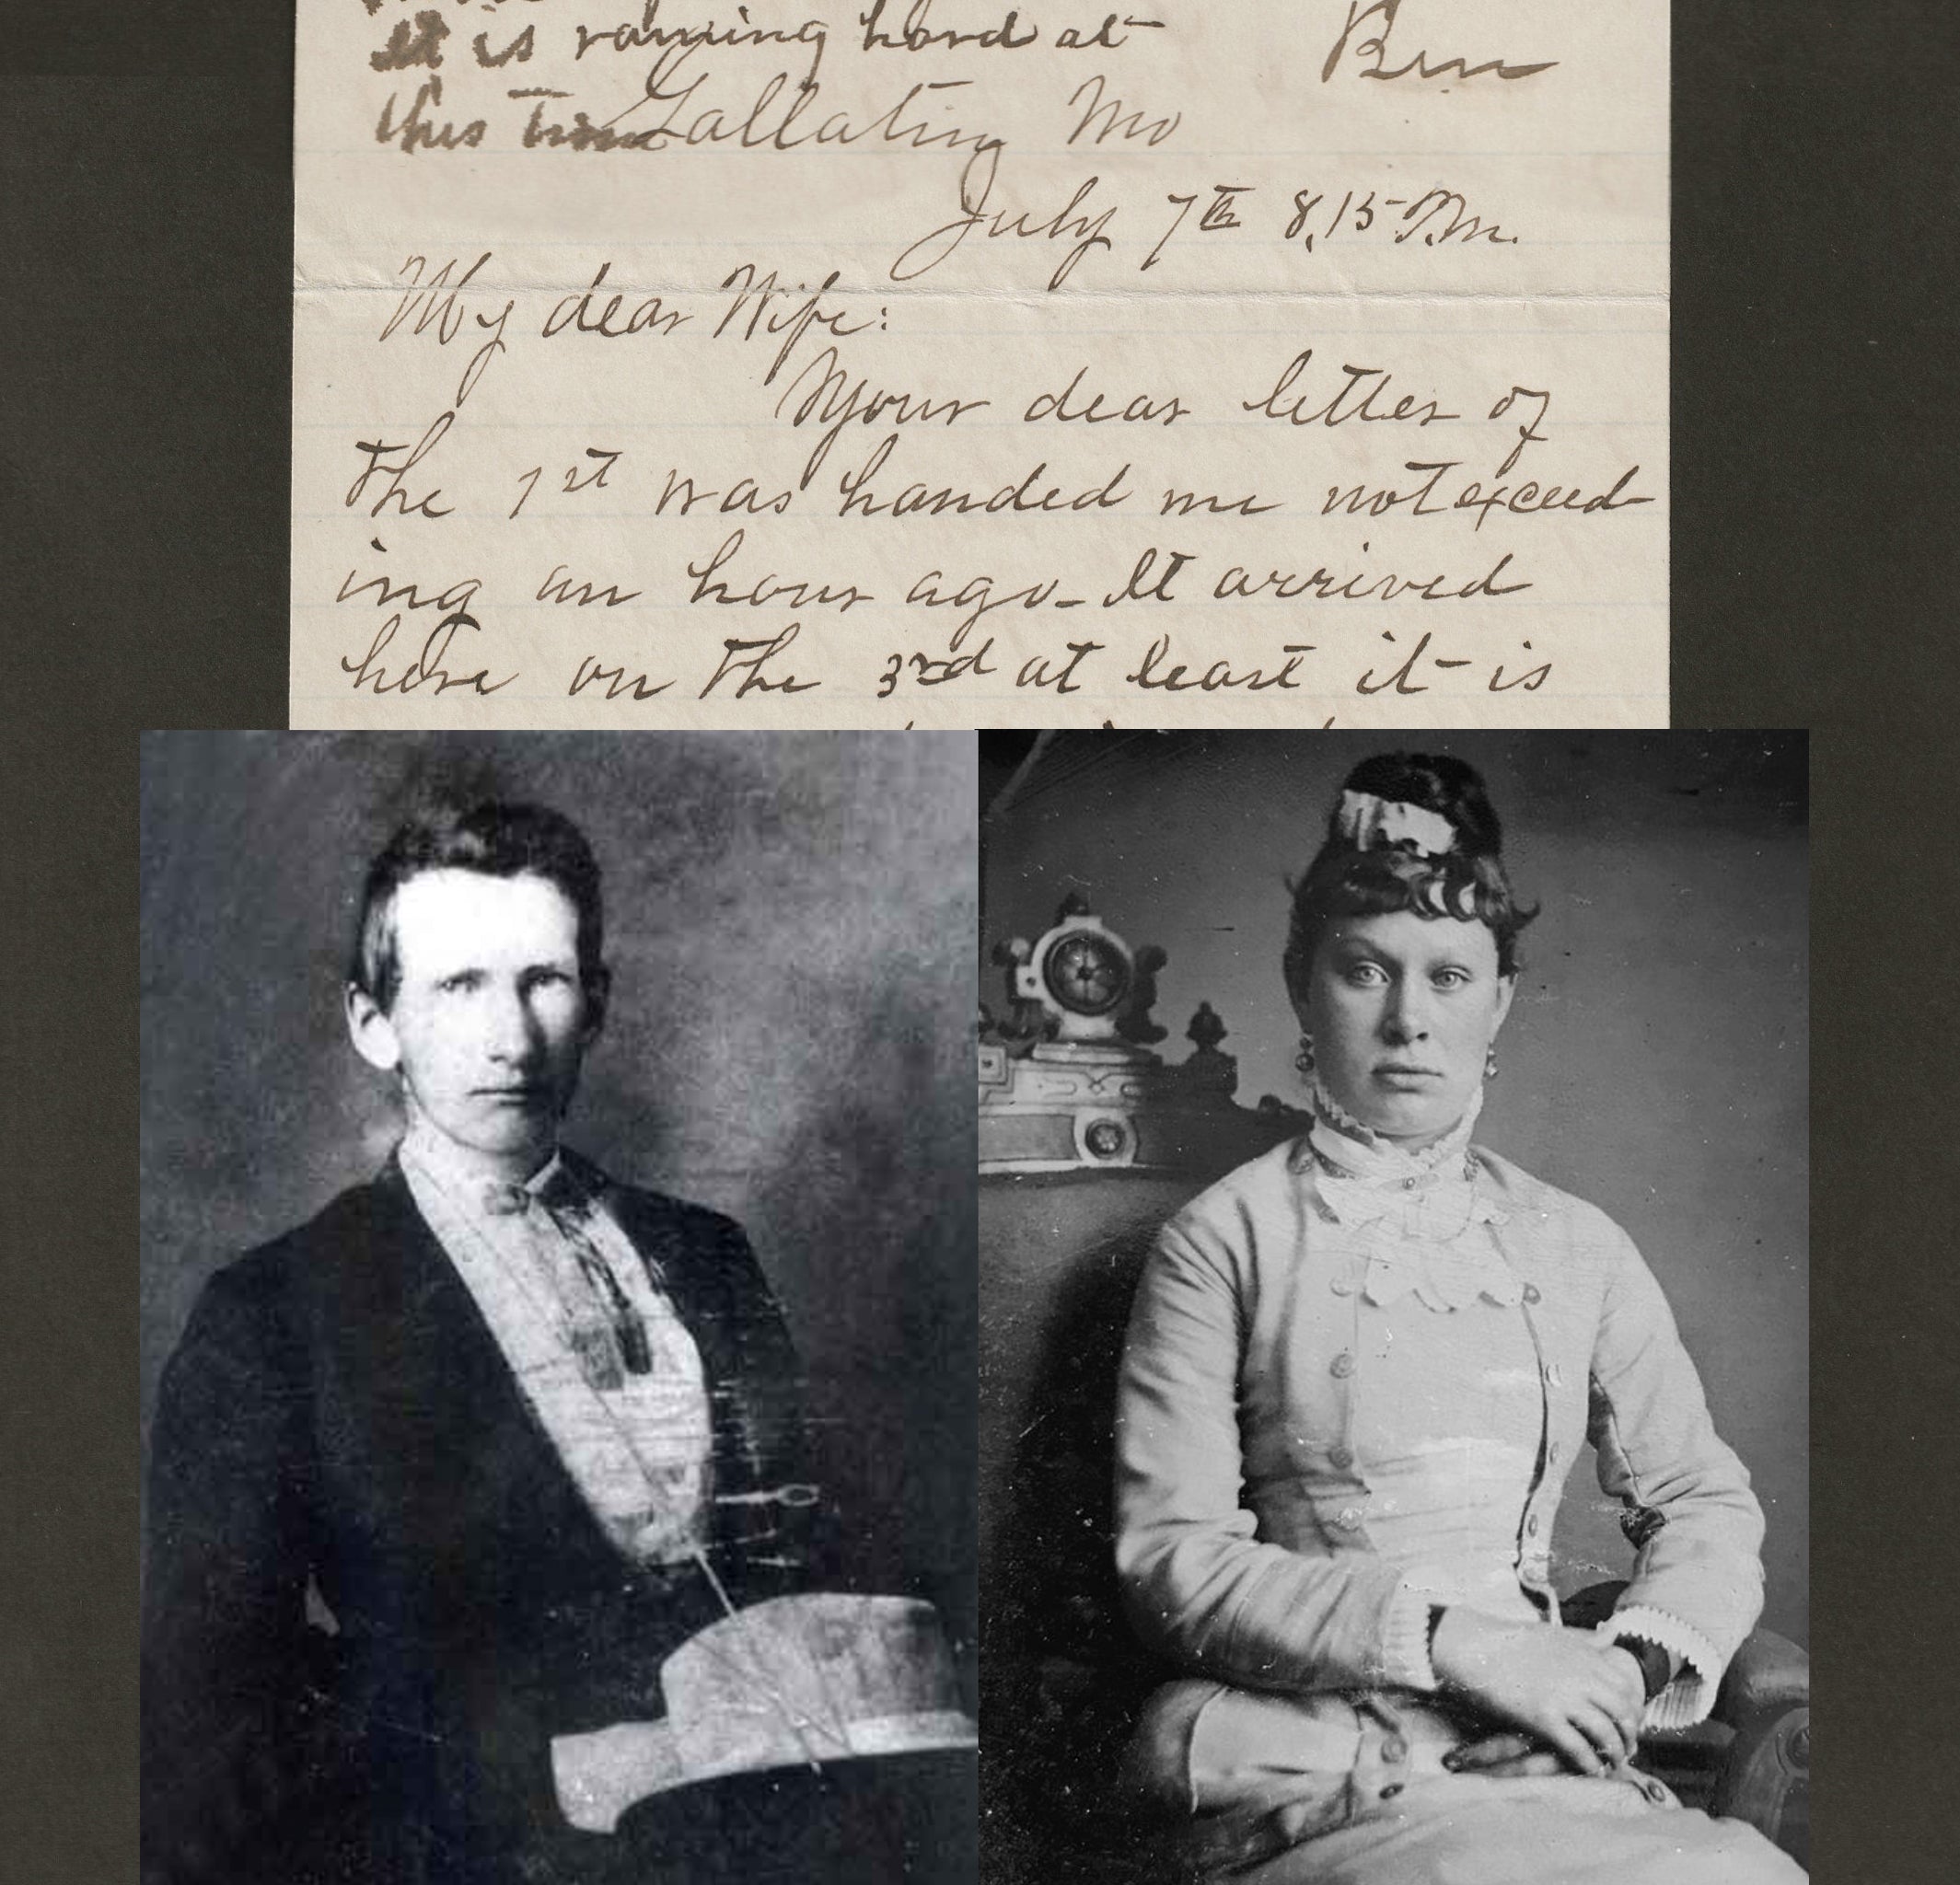 It is raining hard at
Ben
this Time
Gallatin Mo
July 7th 8,15 P.M.
My dear Wife:
Your dear letter of
the 1st was handed me not exceed
ing an hour ago - It arrived
here on the 3rd at least it is